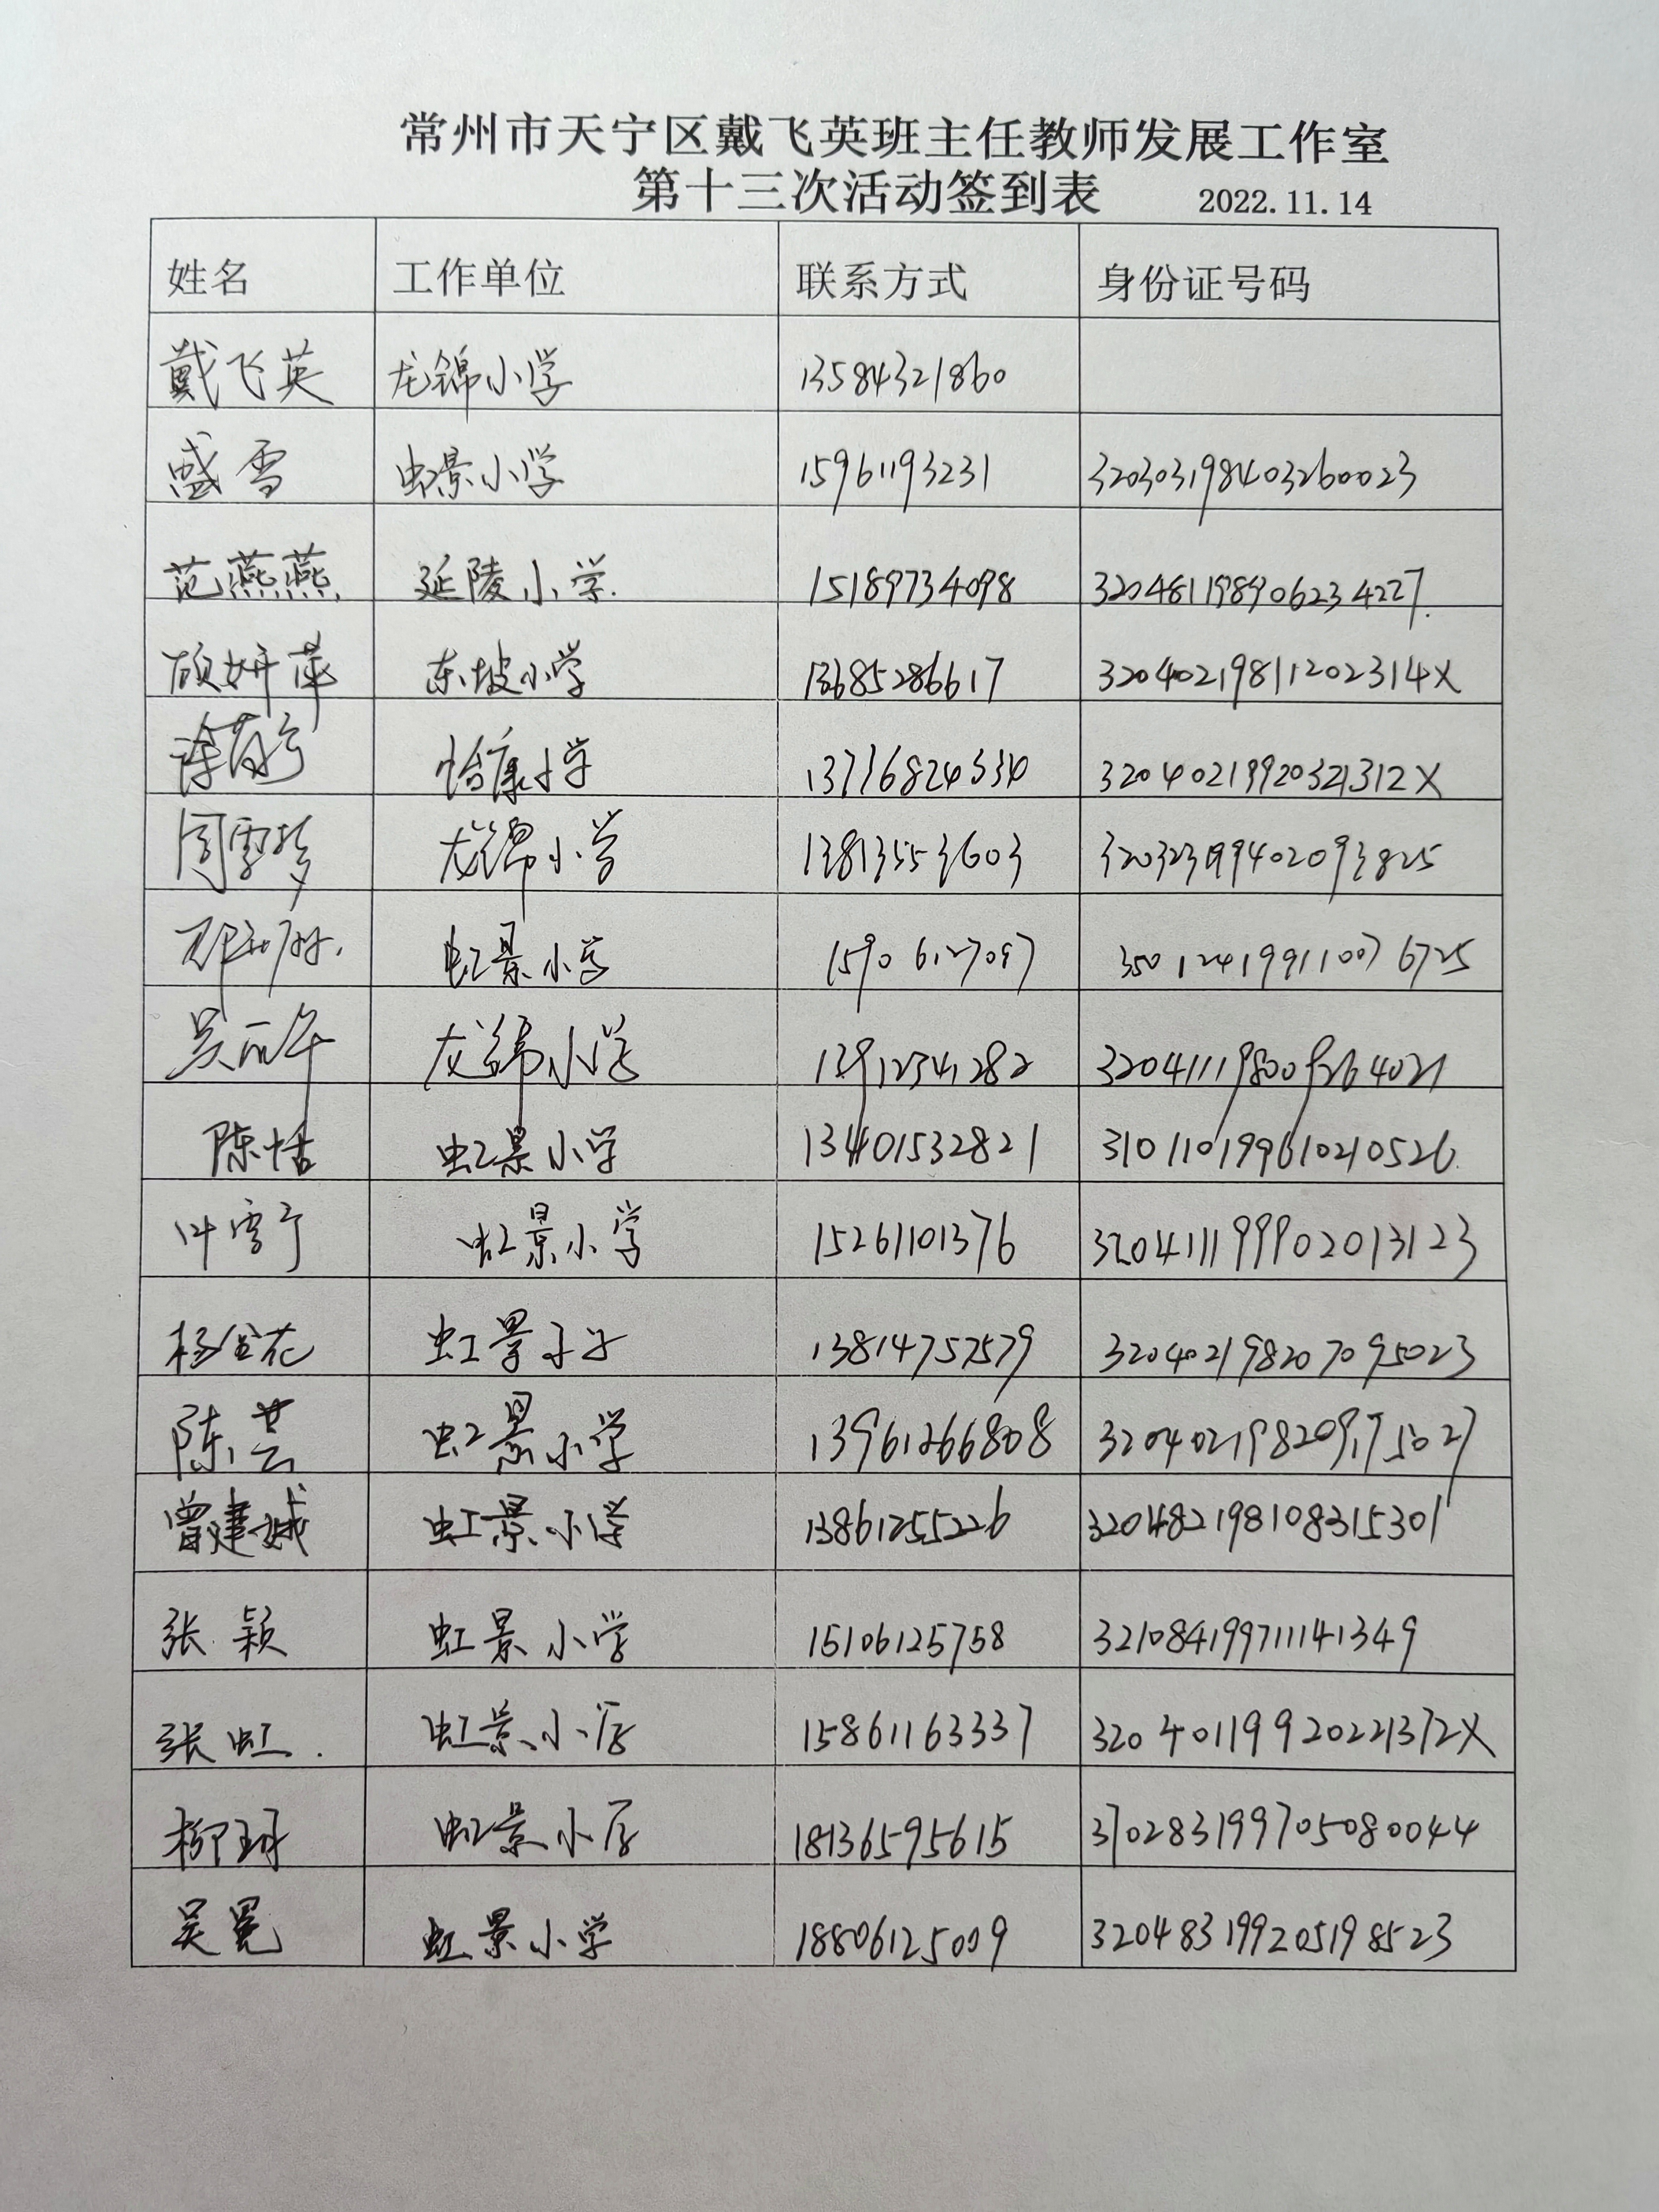 常州市天宁区戴飞英班主任教师发展工作室
第十三次活动签到表 2022.11.14
姓名 工作单位 联系方式 身份证号码
戴飞英 龙锦小学 13584321860
盛雪 虹景小学 15961193231 320303198403260023
范燕燕 延陵小学. 15189734098 320481198906234227.
顾妍萍 东坡小学 13685286617 32040219811202314X
怡康小学 32040219920321312X
周雪梦 龙锦小学 13813553603 320323199402093825
虹景小学
吴丽华 龙锦小学 13912341282 320411198009264021
陈恬 虹景小学 13401532821 310110199610210526.
叶雪宁 虹景小学 15261101376 320411199902013123
杨金花 虹景小学 13814757579 320402198207095023
陈芸 虹景小学 13961266808 320402198209175027
曾建城 虹景小学 13861255226 320482198108315301
张颖 虹景小学 15106125758 321084199711141349
张虹. 虹景小学 15861163337 32040119920221372X
柳珂 虹景小学 18136595615 370283199705080044
吴冕 虹景小学 18806125009 320483199205198523